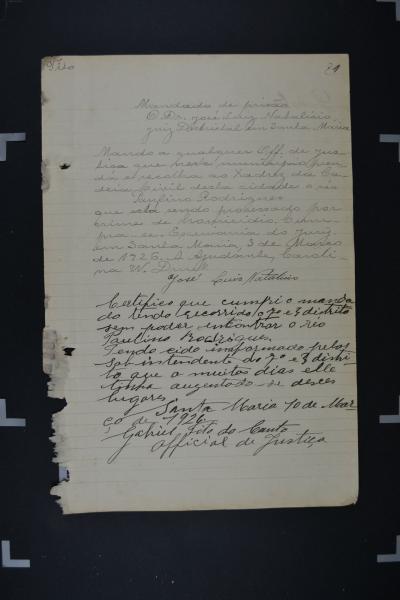 Tito
71
Mandado de prisão
O Dr. José Luiz Natalicio,
juiz Districtal em Santa Maria
Mando a qualquer Off. de jus
tiça que neste municipio pren
da e recolha ao Xadrez da Ca
deia Civil desta cidade o réo
Paulino Rodrigues
que está sendo processado por
crime de Cum
pra-se.
em Santa Maria, 3 de Março
de 1926. A Ajudante, Caroli
na W.
José Luiz Natalicio
Certifico que cumpri o manda
do tendo recorrido o 7º e 3 distrito
sem poder encontrar o réo
Paulino Rodrigues,
Tendo cido informado pelos
Sob intendente do 7º e 3 distri
to que a muitos dias elle
tinha auzentado-se desces
lugares
Santa Maria 10 de Mar
ço de 1926
Gabriel Tito do Canto
Official de Justiça